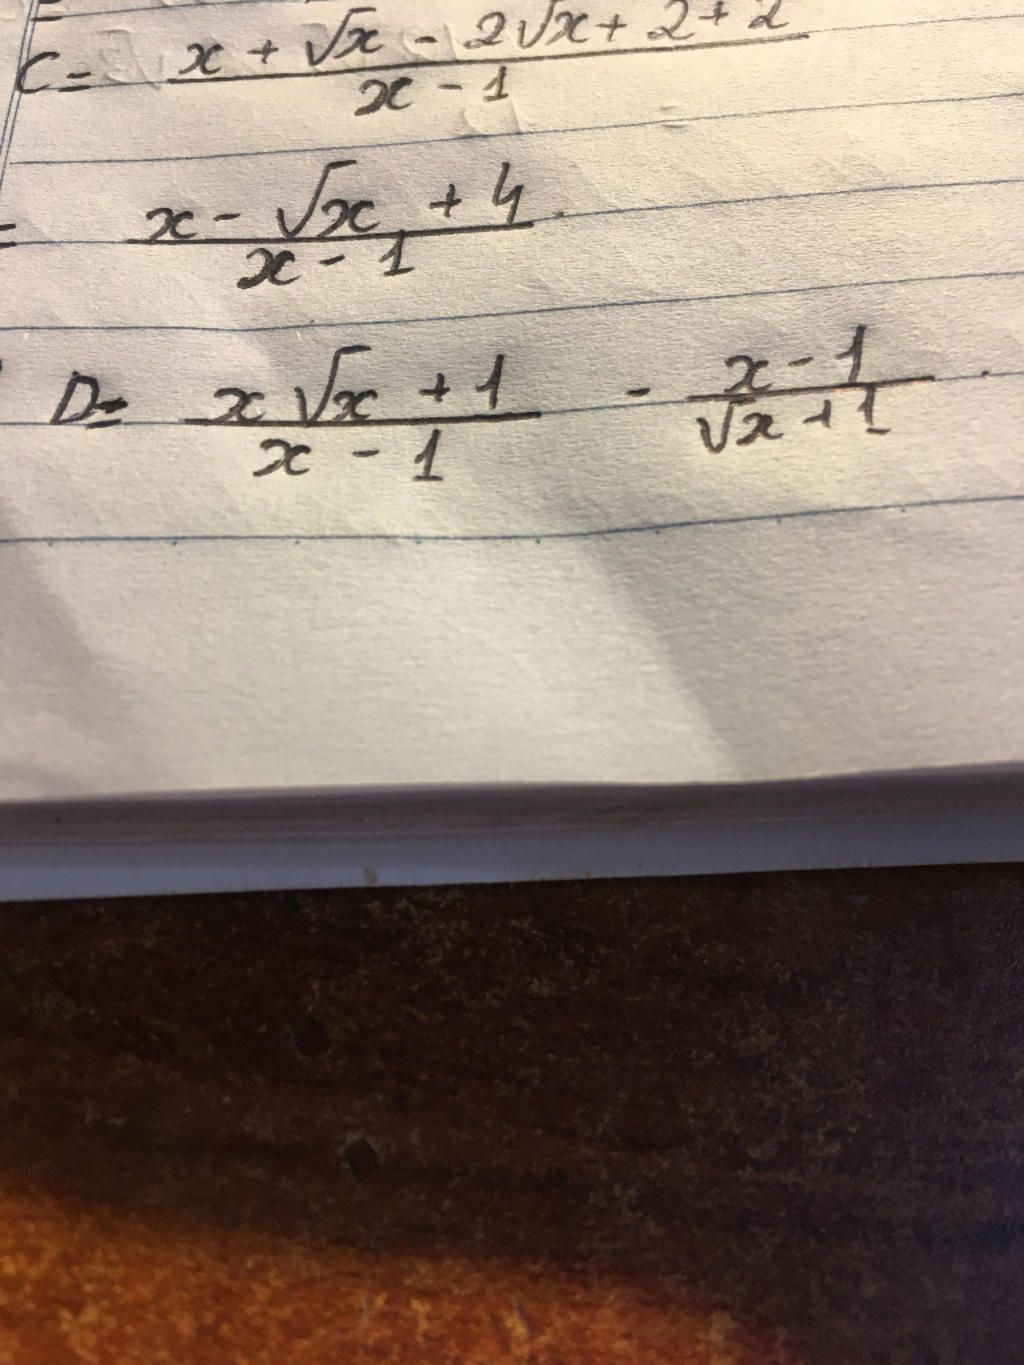 C = x + √x - 2√x + 2 + 2 / x - 1
= x - √x + 4 / x - 1
D = x√x + 1 / x - 1 - x - 1 / √x + 1